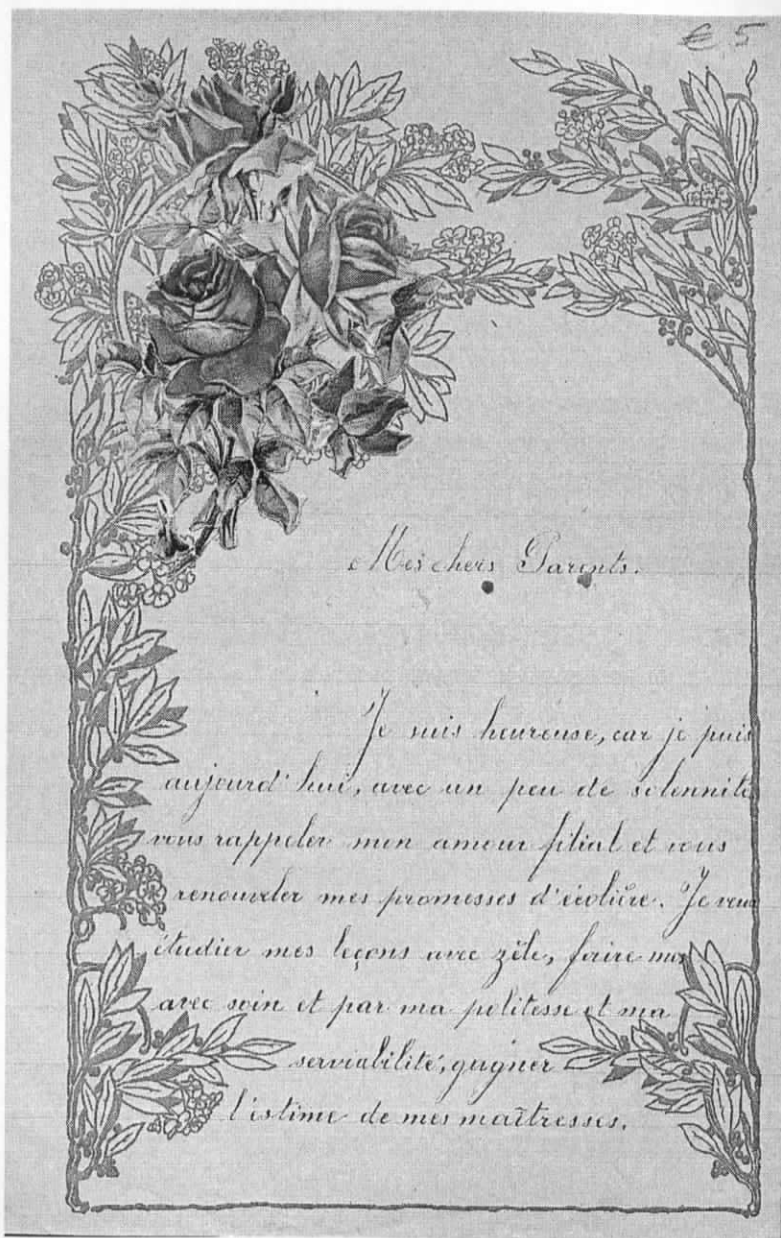 € 5
Mes chers Parents.
Je suis heureuse, car je puis
aujourd'hui, avec un peu de solennité
vous rappeler mon amour filial et vous
renouveler mes promesses d'écolière. Je veux
étudier mes leçons avec zèle, faire mes
avec soin et par ma politesse et ma
serviabilité, gagner
l'estime de mes maîtresses.